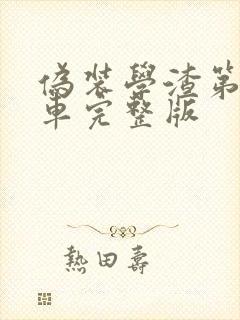 偽裝學渣第
車完整版
熱田壽